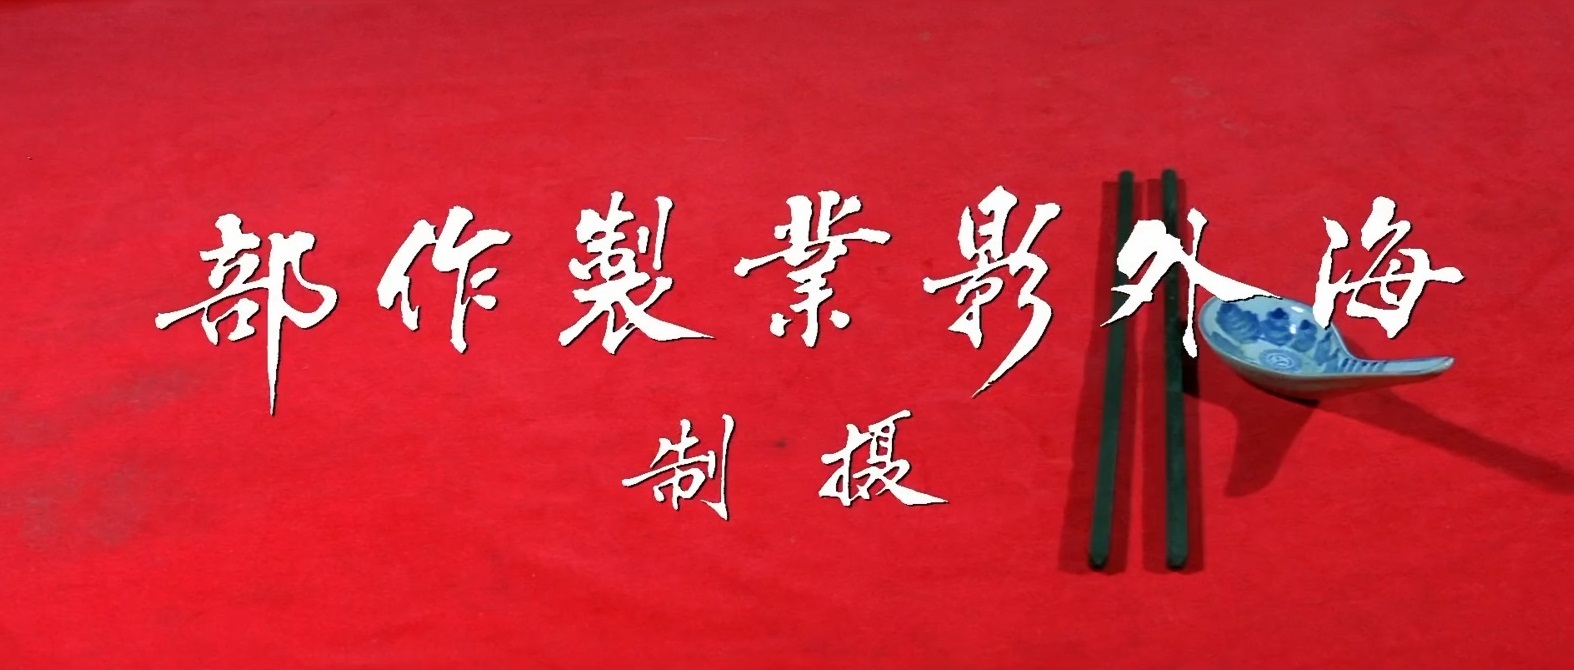 海外影業製作部
摄制